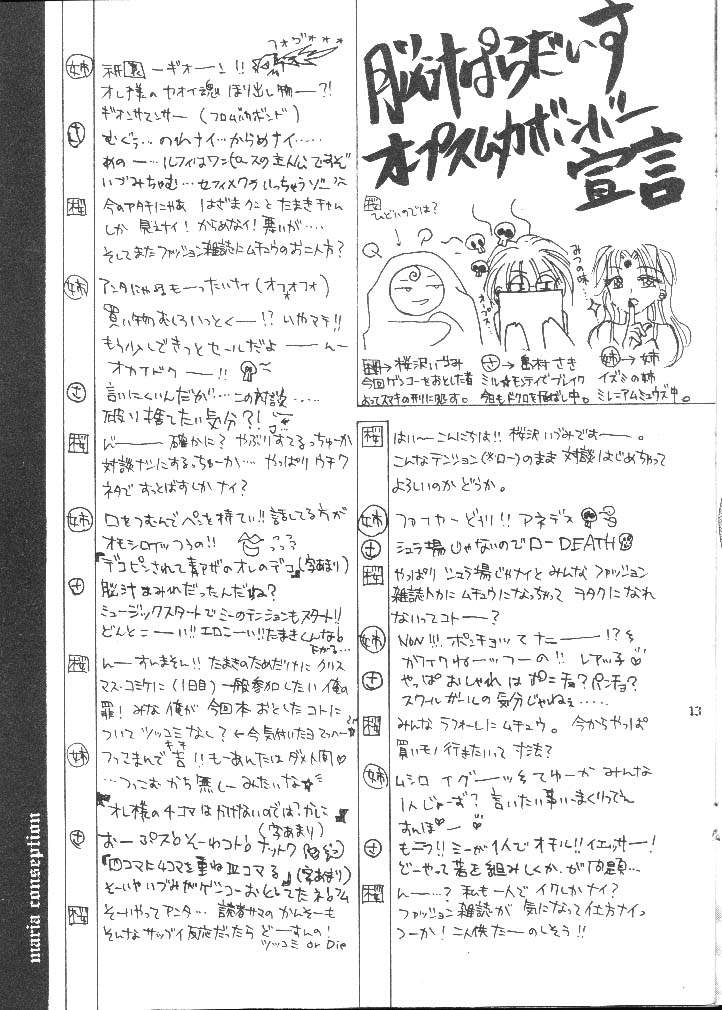 脳汁ぱらだいす
オプスムカボンバー
宣言
桜
ひどいのでは?
みつの味…
桜→桜沢いづみ
今回ゲンコーをおとした者
よってスマキの刑に処す。
さ→島村さき
ミル★モンティでブレイク
今日もドクロを飛ばし中。
姉→姉
イズミの姉
ミレニアムミュウズ中。
桜 はい〜こんにちは!! 桜沢いづみです——。
こんなテンション(×ロー)のまま対談はじめちゃって
よろしいのかどうか。
姉 ファイヤーどりり!! アネデス
さ シュラ場じゃないのでローDEATH
桜 やっぱり シュラ場じゃナイと みんな ファッション
雑誌トカに ムチュウになっちゃって ヲタクになれ
ないってコトー?
姉 NON!!! ポンチョッて ナニ——!?
ガライクねーッつーの!! レアッ子♡
さ やっぱおしゃれは ポニチョ?パンチョ?
スクールガールの気分じゃねぇ……
桜 みんなラフォーレにムチュウ。今からやっぱ
買いモノ行きたいって寸法?
姉 ムシロ イグーッッそてゆーか みんな
1人じゃーず? 言いたい事いいまくりってん
すんぽー♡
さ もニフ!! ミーが1人でオチル!! イエッサー!
どーやって落を組みしくか、が問題…
桜 んー…? 私も一人で イクしかナイ?
ファッション雑誌が 気になって仕方ナイっ
つーか! 二人供たーのしそう!!
13
フォヴォォォ
姉 祇園—ギオーン!!
オレ様のヤオイ魂 ほり出し物ー?!
ギオンサマンサー (フロムバカボンド)
さ むぐぅ… のれナイ…からめナイ……
あのー…ルフィはワンピースの主人公ですぞ
いづみちゃむ…セフィメクラいっちゃうゾー
桜 今のアタチにゃあ はざまクンと たまきチャム
しか 見えナイ! からめない! 悪いが…
そしてまたファッション雑誌にムチュウのお二人方?
姉 アンタにゃぬもーったいナイ(オフォフォ)
買い物むしろいっとくー!? いやマテ!!
もう少しできっとセールだよ ーんー
オカネドクー!!
さ 言いにくいんだが…この対談……
破り捨てたい気分?!
桜 んー— 確かに? やぶりすてるっちゅーか
対談ナシにするっちゅーか… やっぱり ウチワ
ネタで すっとばすしか ナイ?
姉 口をつむんでペンを持てい!! 話してる方が
オモシロイッつうの!!
『デコピンされて青アザのオレのデコ』(字あまり)
さ 脳汁まみれだったんだね?
ミュージックスタートでミーのテンションもスタート!!
どんとこーい!! エロこーい!! たまきくんなら
桜 んーオレまそん!! たまきのためだけに クリス
マス・コミケに(1日目)一般参加したい俺の
罪! みな俺が 今回本おとしたコトに
ついて ツッコミなし? ←今気付いたヨ
姉 フってまんで吉!! もーあんたはダメ人間♡
…つっこむかち無しーみたいな☆
『オレ様の4コマはかけないのでは?かしこ』
(字あまり)
さ おーぷスッそーゆコト♪ ナットク
『四コマに4コマを重ねⅢコマる』(字あまり)
そーいやいづみがゲンコーおとしてたネ!
桜 そーいやってアンタ… 読者サマのかんそーも
そんなサップイ反応だったら どーすんの!
ツッコミ or Die
maria conseption